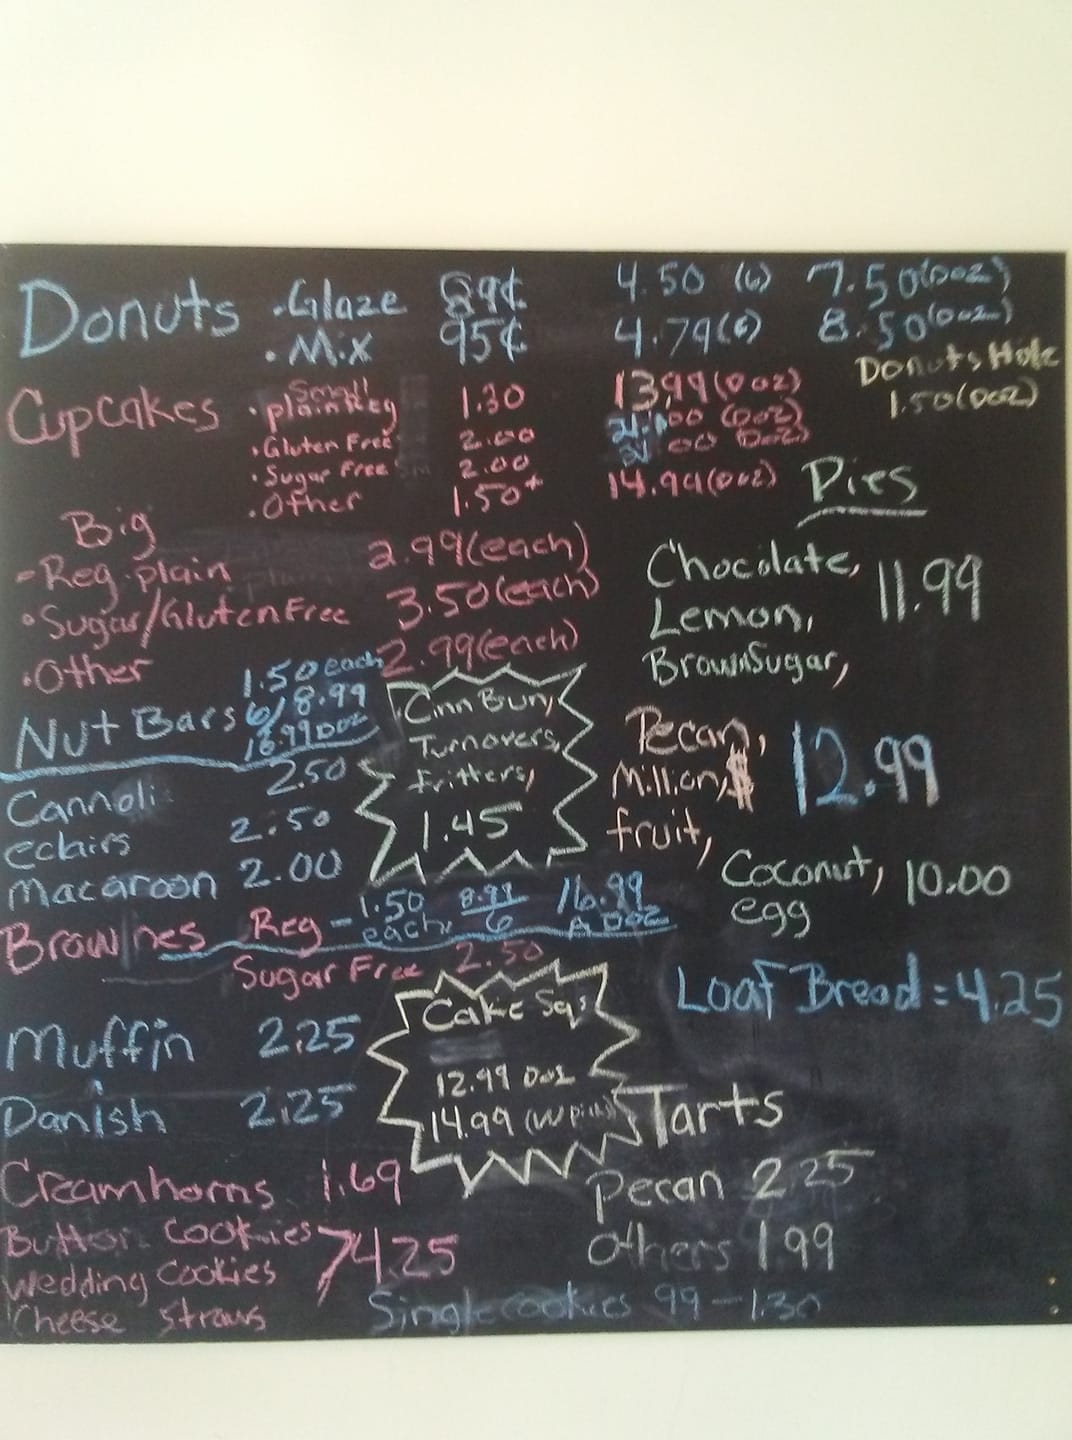 Donuts .Glaze 89¢ 4.50 (6) 7.50 (Doz)
. Mix 95¢ 4.79 (6) 8.50 (Doz)
Donuts Hole
1.50 (Doz)
Cupcakes
Small
. plain Reg 1.30 13.99 (Doz)
. Gluten Free 2.00 21.00 (Doz)
. Sugar Free sm 2.00 21 00 Doz)
. Other 1.50+ 14.99 (Doz)
Big
- Reg. plain 2.99 (each)
• Sugar/Gluten Free 3.50 (each)
. Other 2.99 (each)
Nut Bars
1.50 each
6/8.99
16.99 Doz
Cannoli 2.50
eclairs 2.50
Macaroon 2.00
Cinn Bun,
Turnovers,
Fritters,
1.45
Brownies Reg - 1.50 each, 8.99/6 16.99 A Doz
Sugar Free 2.50
Muffin 2.25
Danish 2.25
Cake Sqs
12.99 Doz
14.99
Creamhorns 1.69
Button Cookies
Wedding Cookies
Cheese Straws
4.25
Single cookies 99 - 1.30
Pies
Chocolate,
Lemon,
BrownSugar,
11.99
Pecan,
Million, $
fruit,
12.99
Coconut,
egg
10.00
Loaf Bread = 4.25
Tarts
Pecan 2.25
Others 1.99